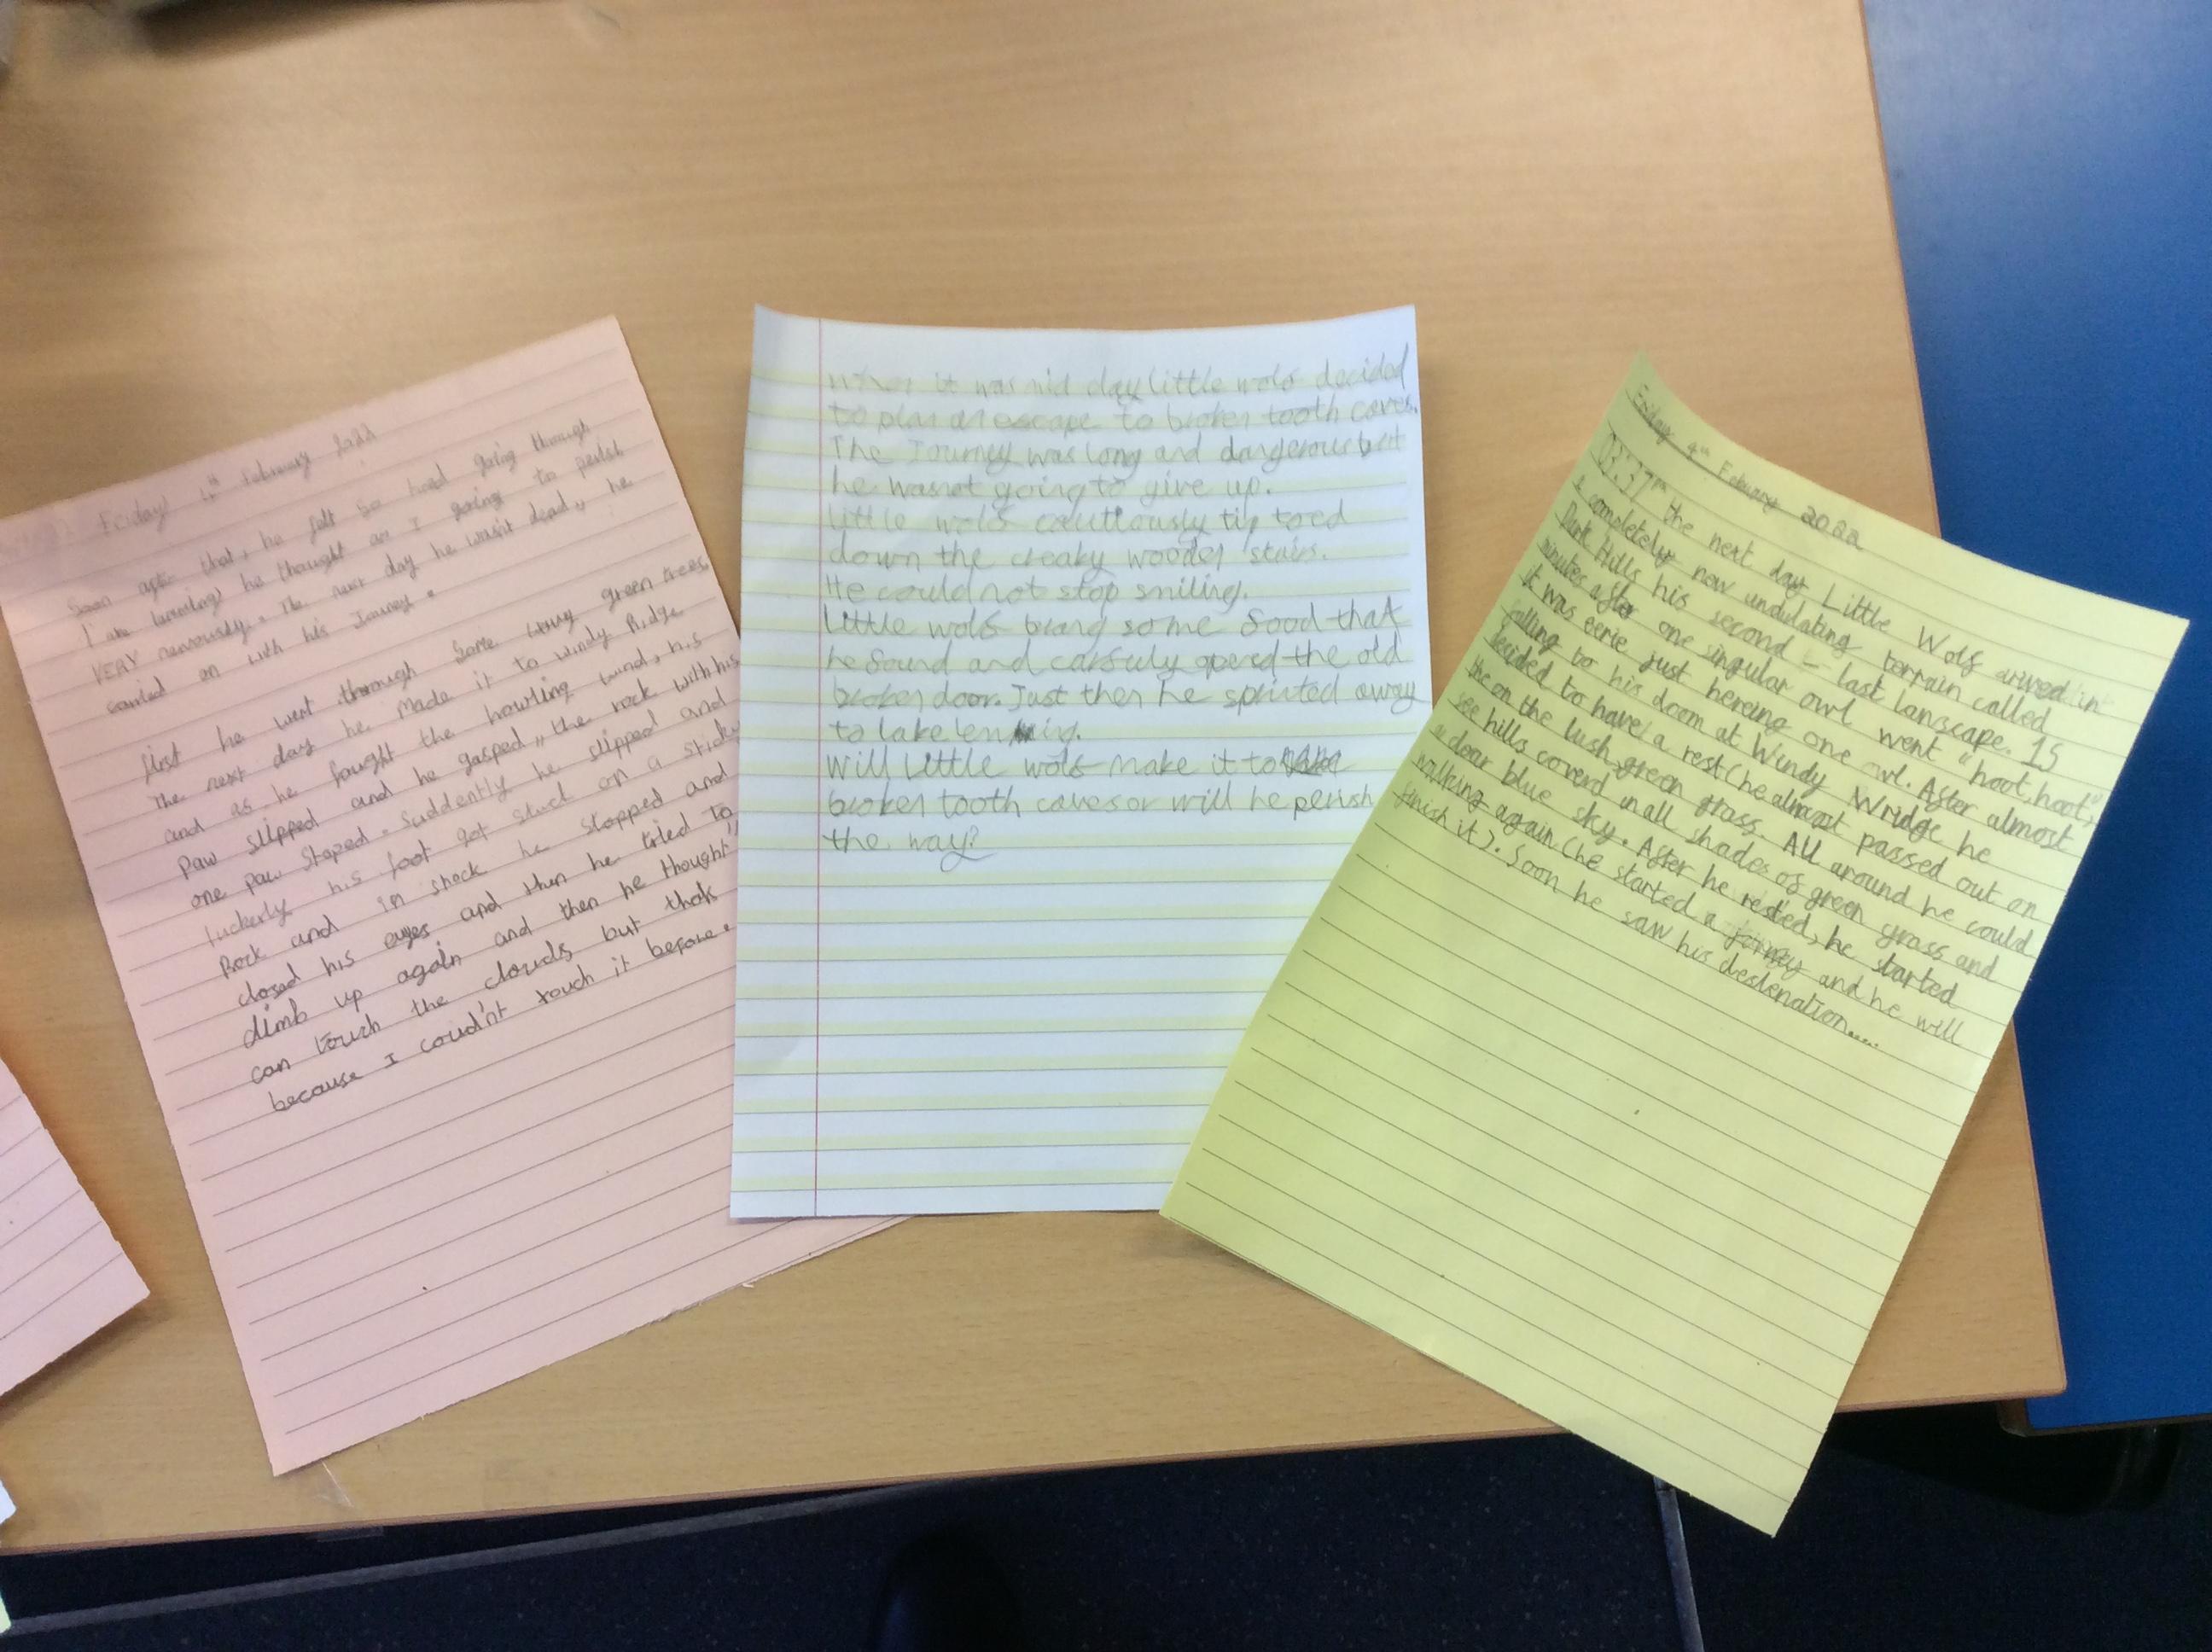 Friday 4th February 2022
Soon after that, he felt so hard going through
I am burning) he thought am I going to perish
VERY nervously. The next day he wasn't dead,, he
carried on with his Jouney.
first he went through some long green trees,
The next day he made it to windy Ridge
and as he fought the howling wind, his
paw slipped and he gasped,, the rock with his
one paw stoped. Suddently he slipped and
luckerly his foot got stuck on a stick
Rock and in shock he stopped and
closed his eyes and then he tried to
climb up again and then he thought
can touch the clouds but thats
because I coudn't touch it before.
When it was mid day little wolf decided
to plan an escape to broken tooth caves.
The Journey was long and dangerous but
he was not going to give up.
Little wolf cautiously tip toed
down the creaky wooden stairs.
He could not stop smiling.
Little wolf brang some food that
he found and carfuly opened the old
broken door. Just then he sprinted away
to lake lenning.
Will Little wolf make it to
broken tooth caves or will he perish
the way?
Friday 4th Febuary 2022
03:37pm the next day Little Wolf arived in
a completely new undulating terrain called
Dark Hills his second - last lanscape. 15
minutes after one singular owl went "hoot, hoot",
it was eerie just hereing one owl. After almost
falling to his doom at Windy Wridge he
decided to have a rest (he almost passed out on
the on the lush green grass. All around he could
see hills coverd in all shades of green grass and
a clear blue sky. After he rested, he started
walking again (he started a jorney and he will
finish it). Soon he saw his destenation....